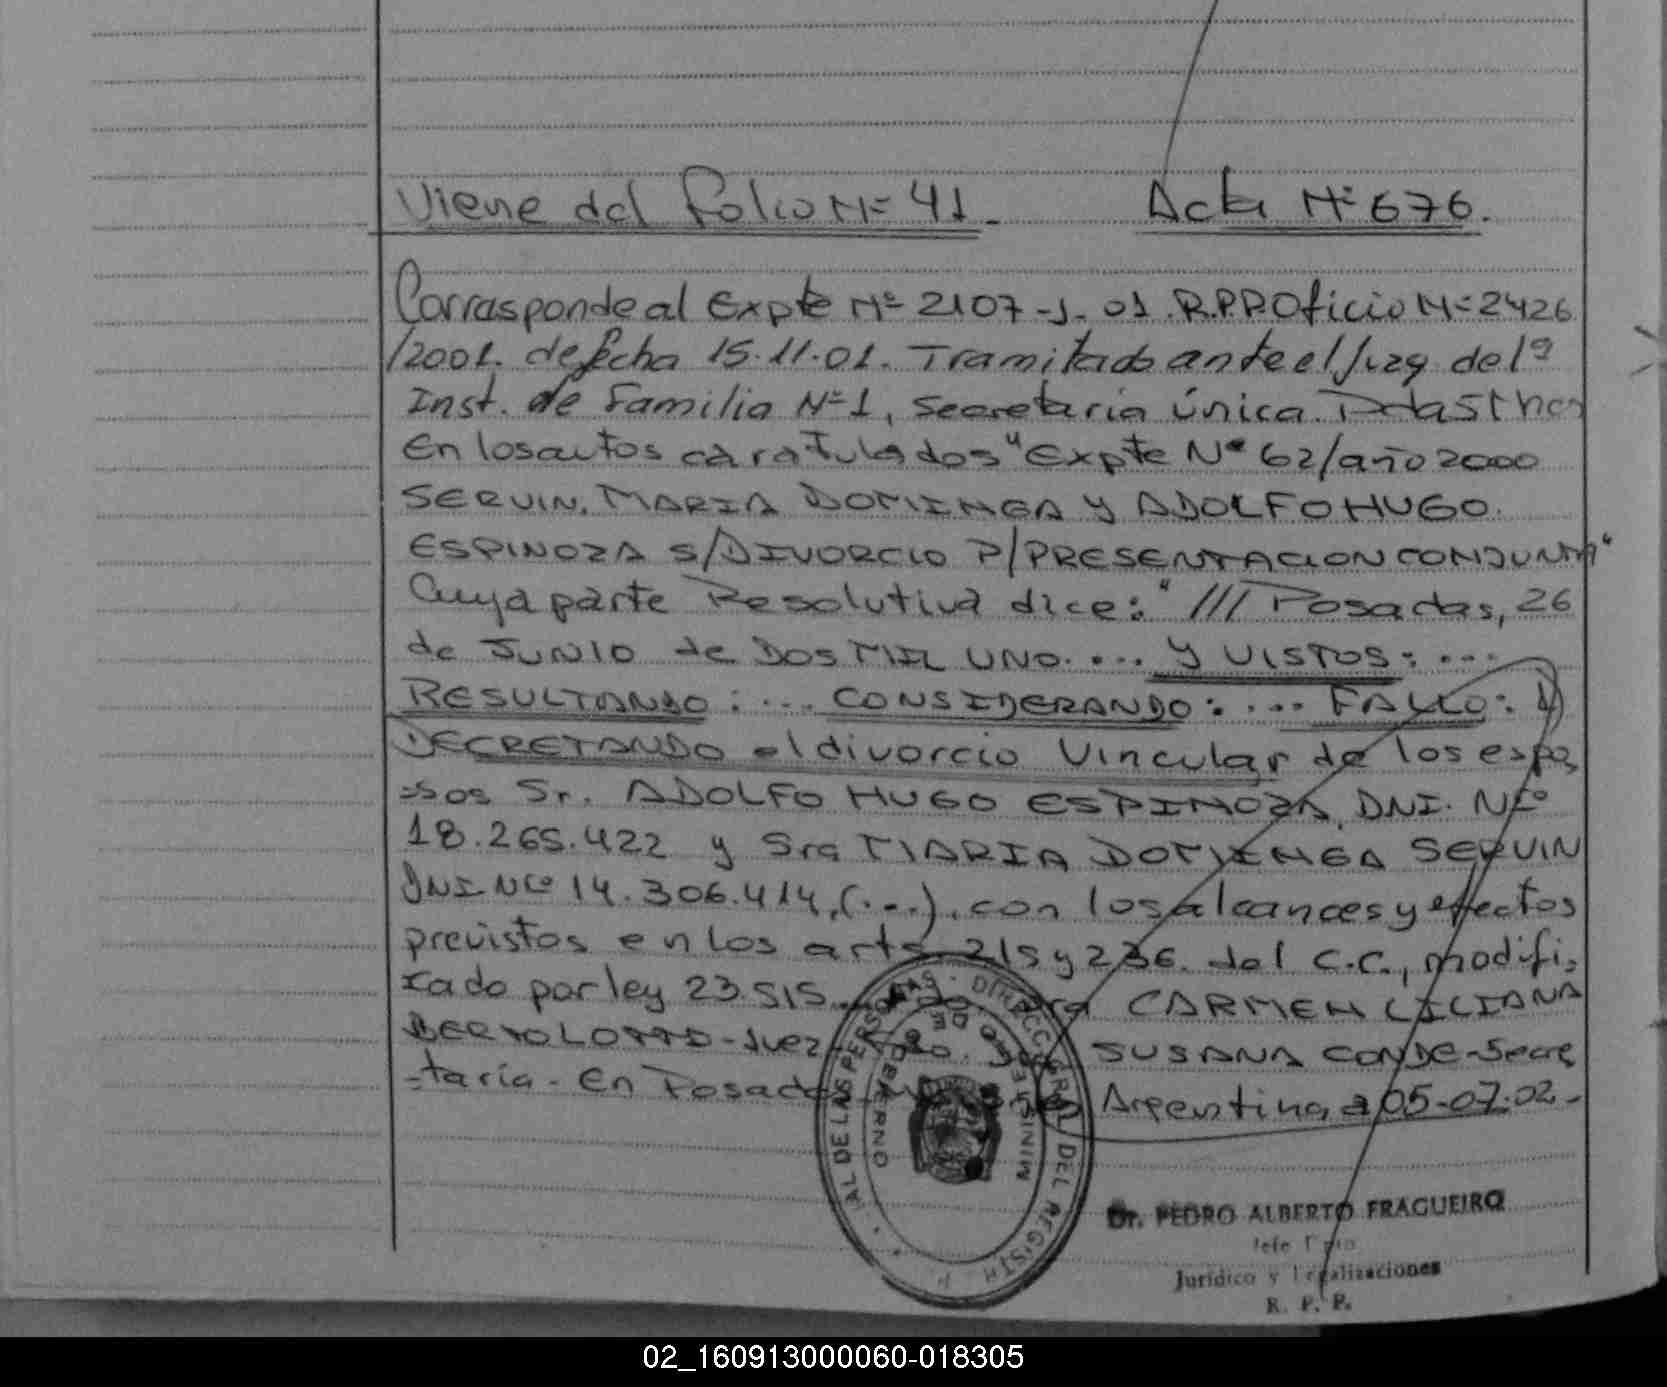 Viene del folio Nº 41.   Acta Nº 676.
Corresponde al Expte Nº 2107-J-01. R.P.P. Oficio Nº 2426
/2001. de fecha 15.11.01. Tramitado ante el Juzg. del 1º
Inst. de Familia Nº 1, Secretaria única
En los autos caratulados "Expte Nº 62/año 2000
SERVIN, MARIA DOMINGA Y ADOLFO HUGO.
ESPINOZA S/DIVORCIO P/PRESENTACION CONJUNTA"
Cuya parte Resolutiva dice: "/// Posadas, 26
de JUNIO de DOS MIL UNO.... Y VISTOS: ...
RESULTANDO: ... CONSIDERANDO: ... FALLO: 1)
DECRETANDO el divorcio Vincular de los espo,
=sos Sr. ADOLFO HUGO ESPINOZA, DNI. Nº
18.265.422 y Sra MARIA DOMINGA SERVIN
DNI Nº 14.306.414, (...), con los alcances y efectos
previstos en los arts. 215 y 236. del C.C., modifi=
cado por ley 23.515. CARMEN LILIANA
BERTOLOTTO-Juez- SUSANA CONDE-Secre
=taria- En Posadas Argentina, a 05-07-02-
DIRECC GRAL DEL REGIST AL DE LAS PERSONAS
MINISTERIO DE GOBIERNO
Dr. PEDRO ALBERTO FRAGUEIRO
Jefe Dpto
Jurídico y Legalizaciones
R. P. P.
02_160913000060-018305